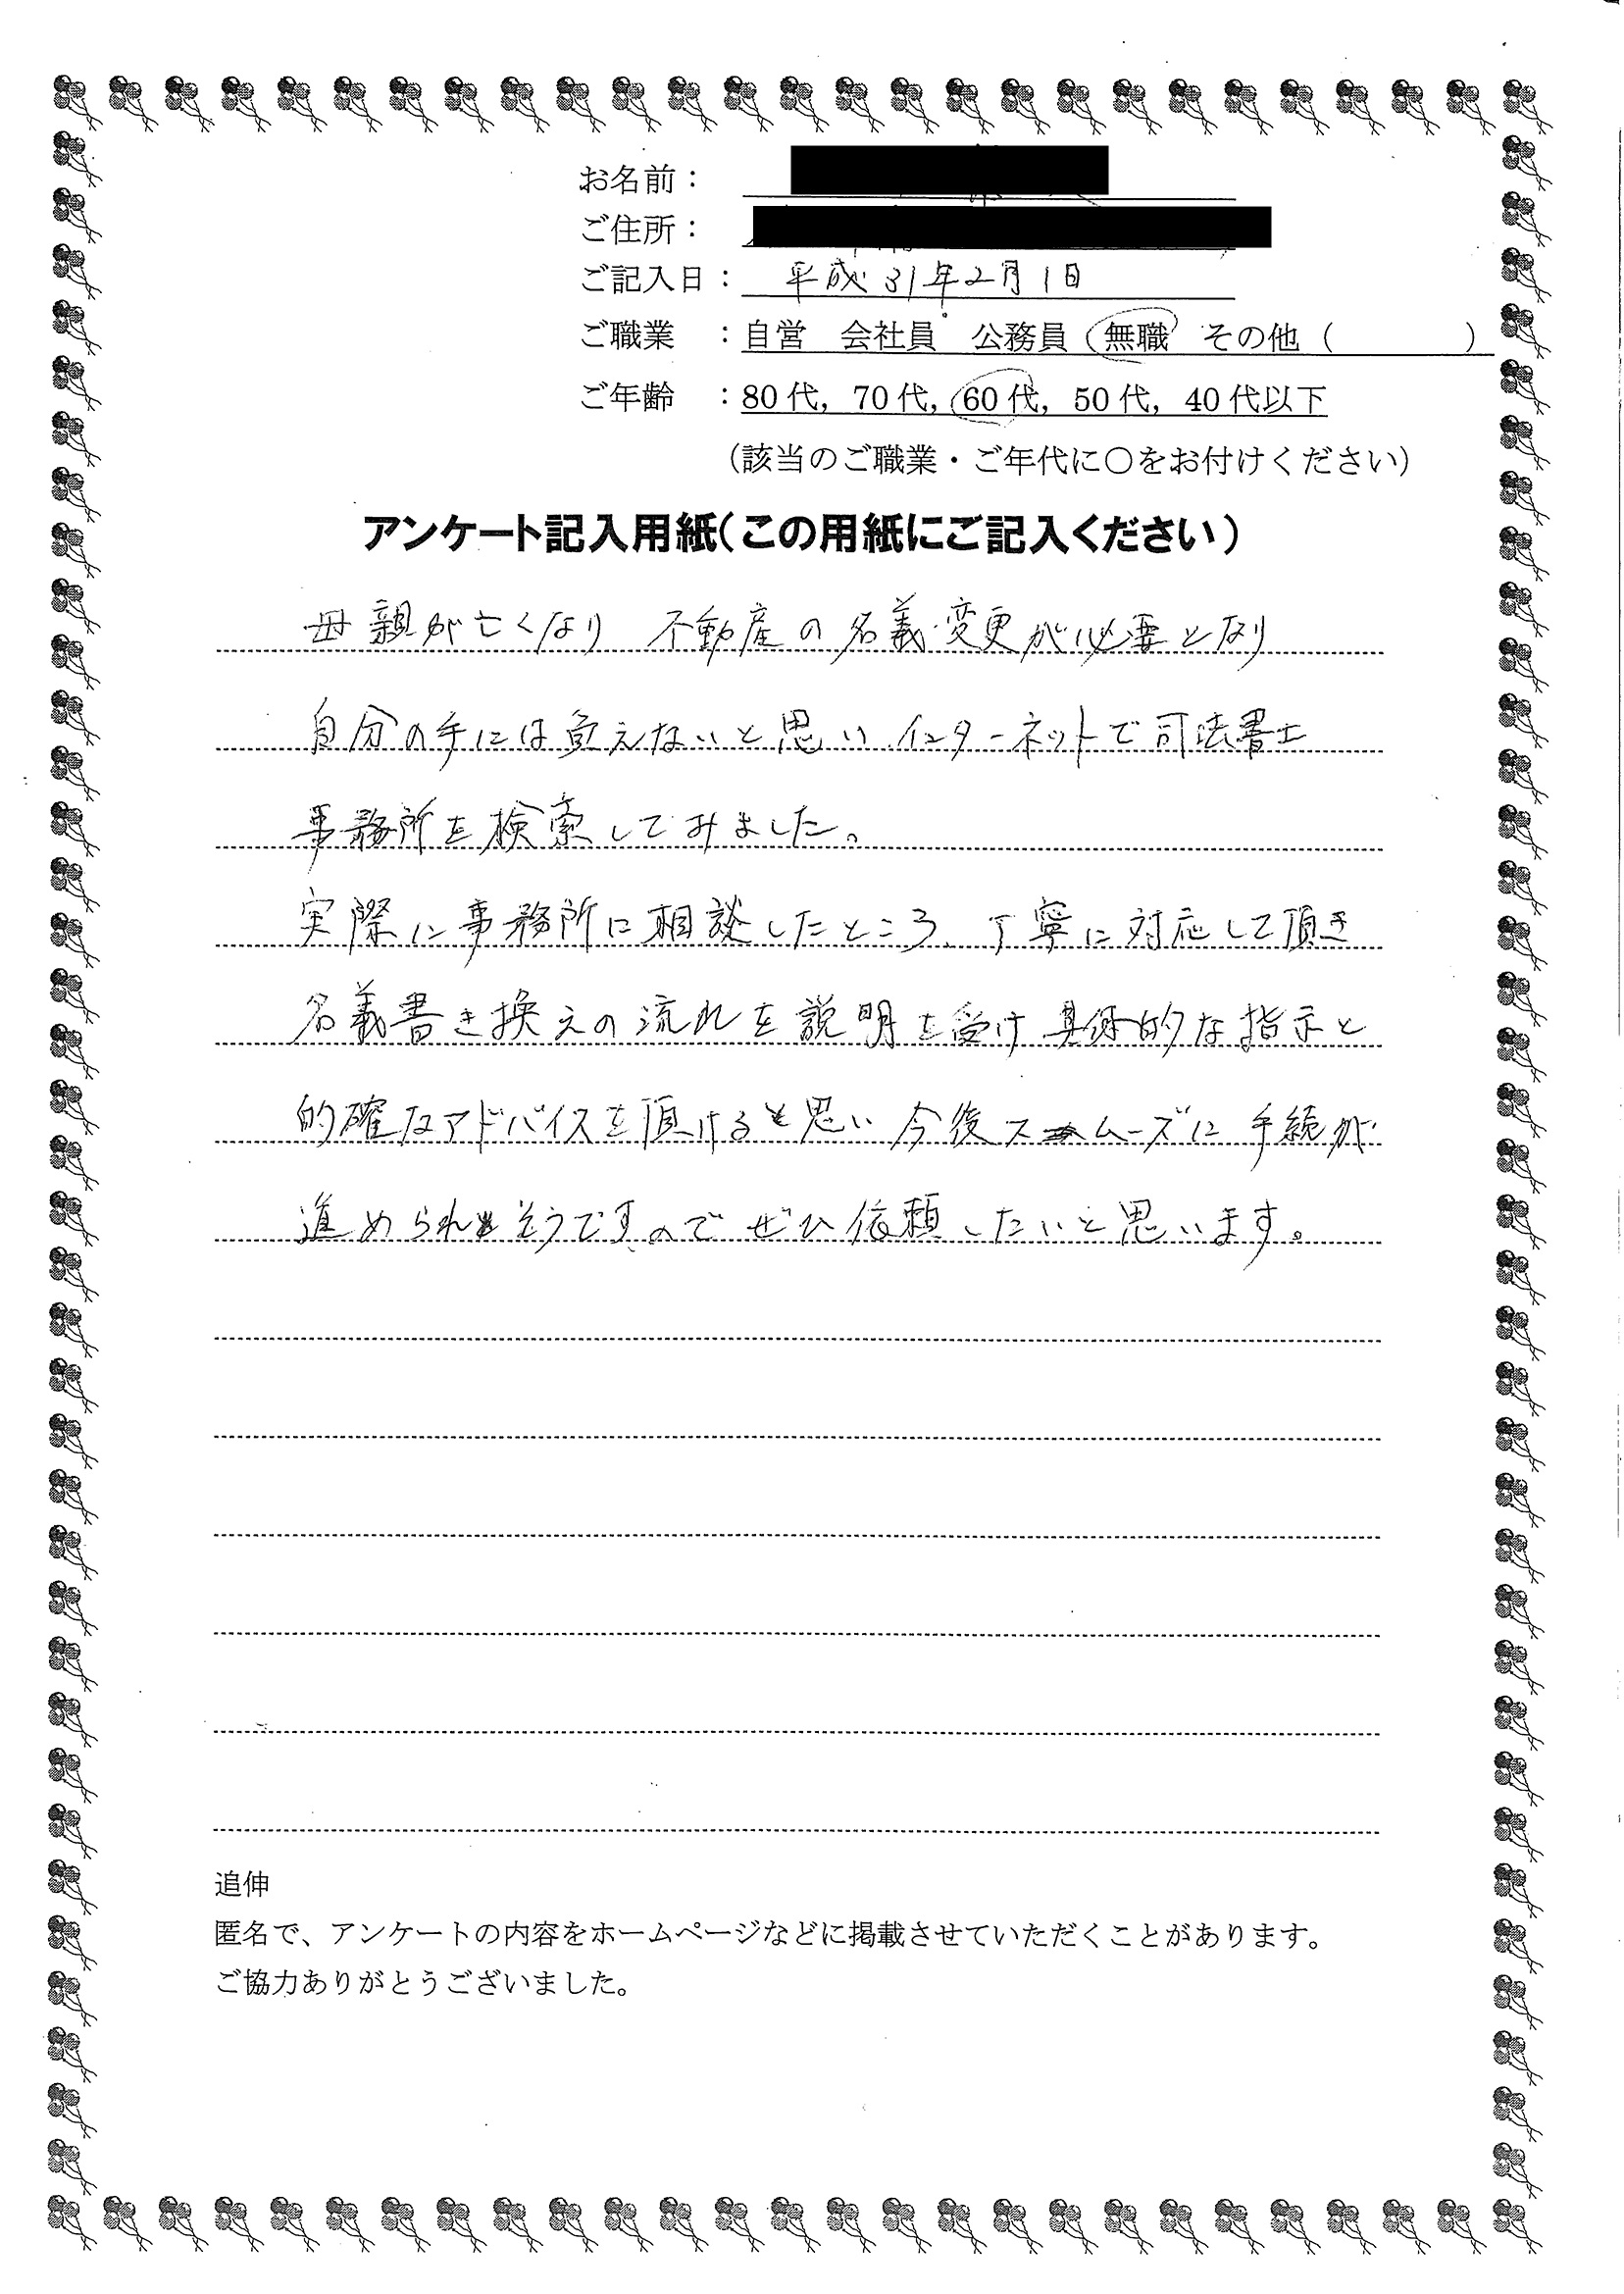 お名前：
ご住所：
ご記入日： 平成31年2月1日
ご職業 ：自営 会社員 公務員 無職 その他（ ）
ご年齢 ：80代，70代，60代，50代，40代以下
（該当のご職業・ご年代に〇をお付けください）
アンケート記入用紙（この用紙にご記入ください）
母親が亡くなり 不動産の名義変更が必要となり
自分の手には負えないと思い インターネットで司法書士
事務所を検索してみました。
実際に事務所に相談したところ、丁寧に対応して頂き
名義書き換えの流れを説明を受け 具体的な指示と
的確なアドバイスを頂けると思い 今後スムーズに手続が
進められそうですので ぜひ依頼したいと思います。
追伸
匿名で、アンケートの内容をホームページなどに掲載させていただくことがあります。
ご協力ありがとうございました。